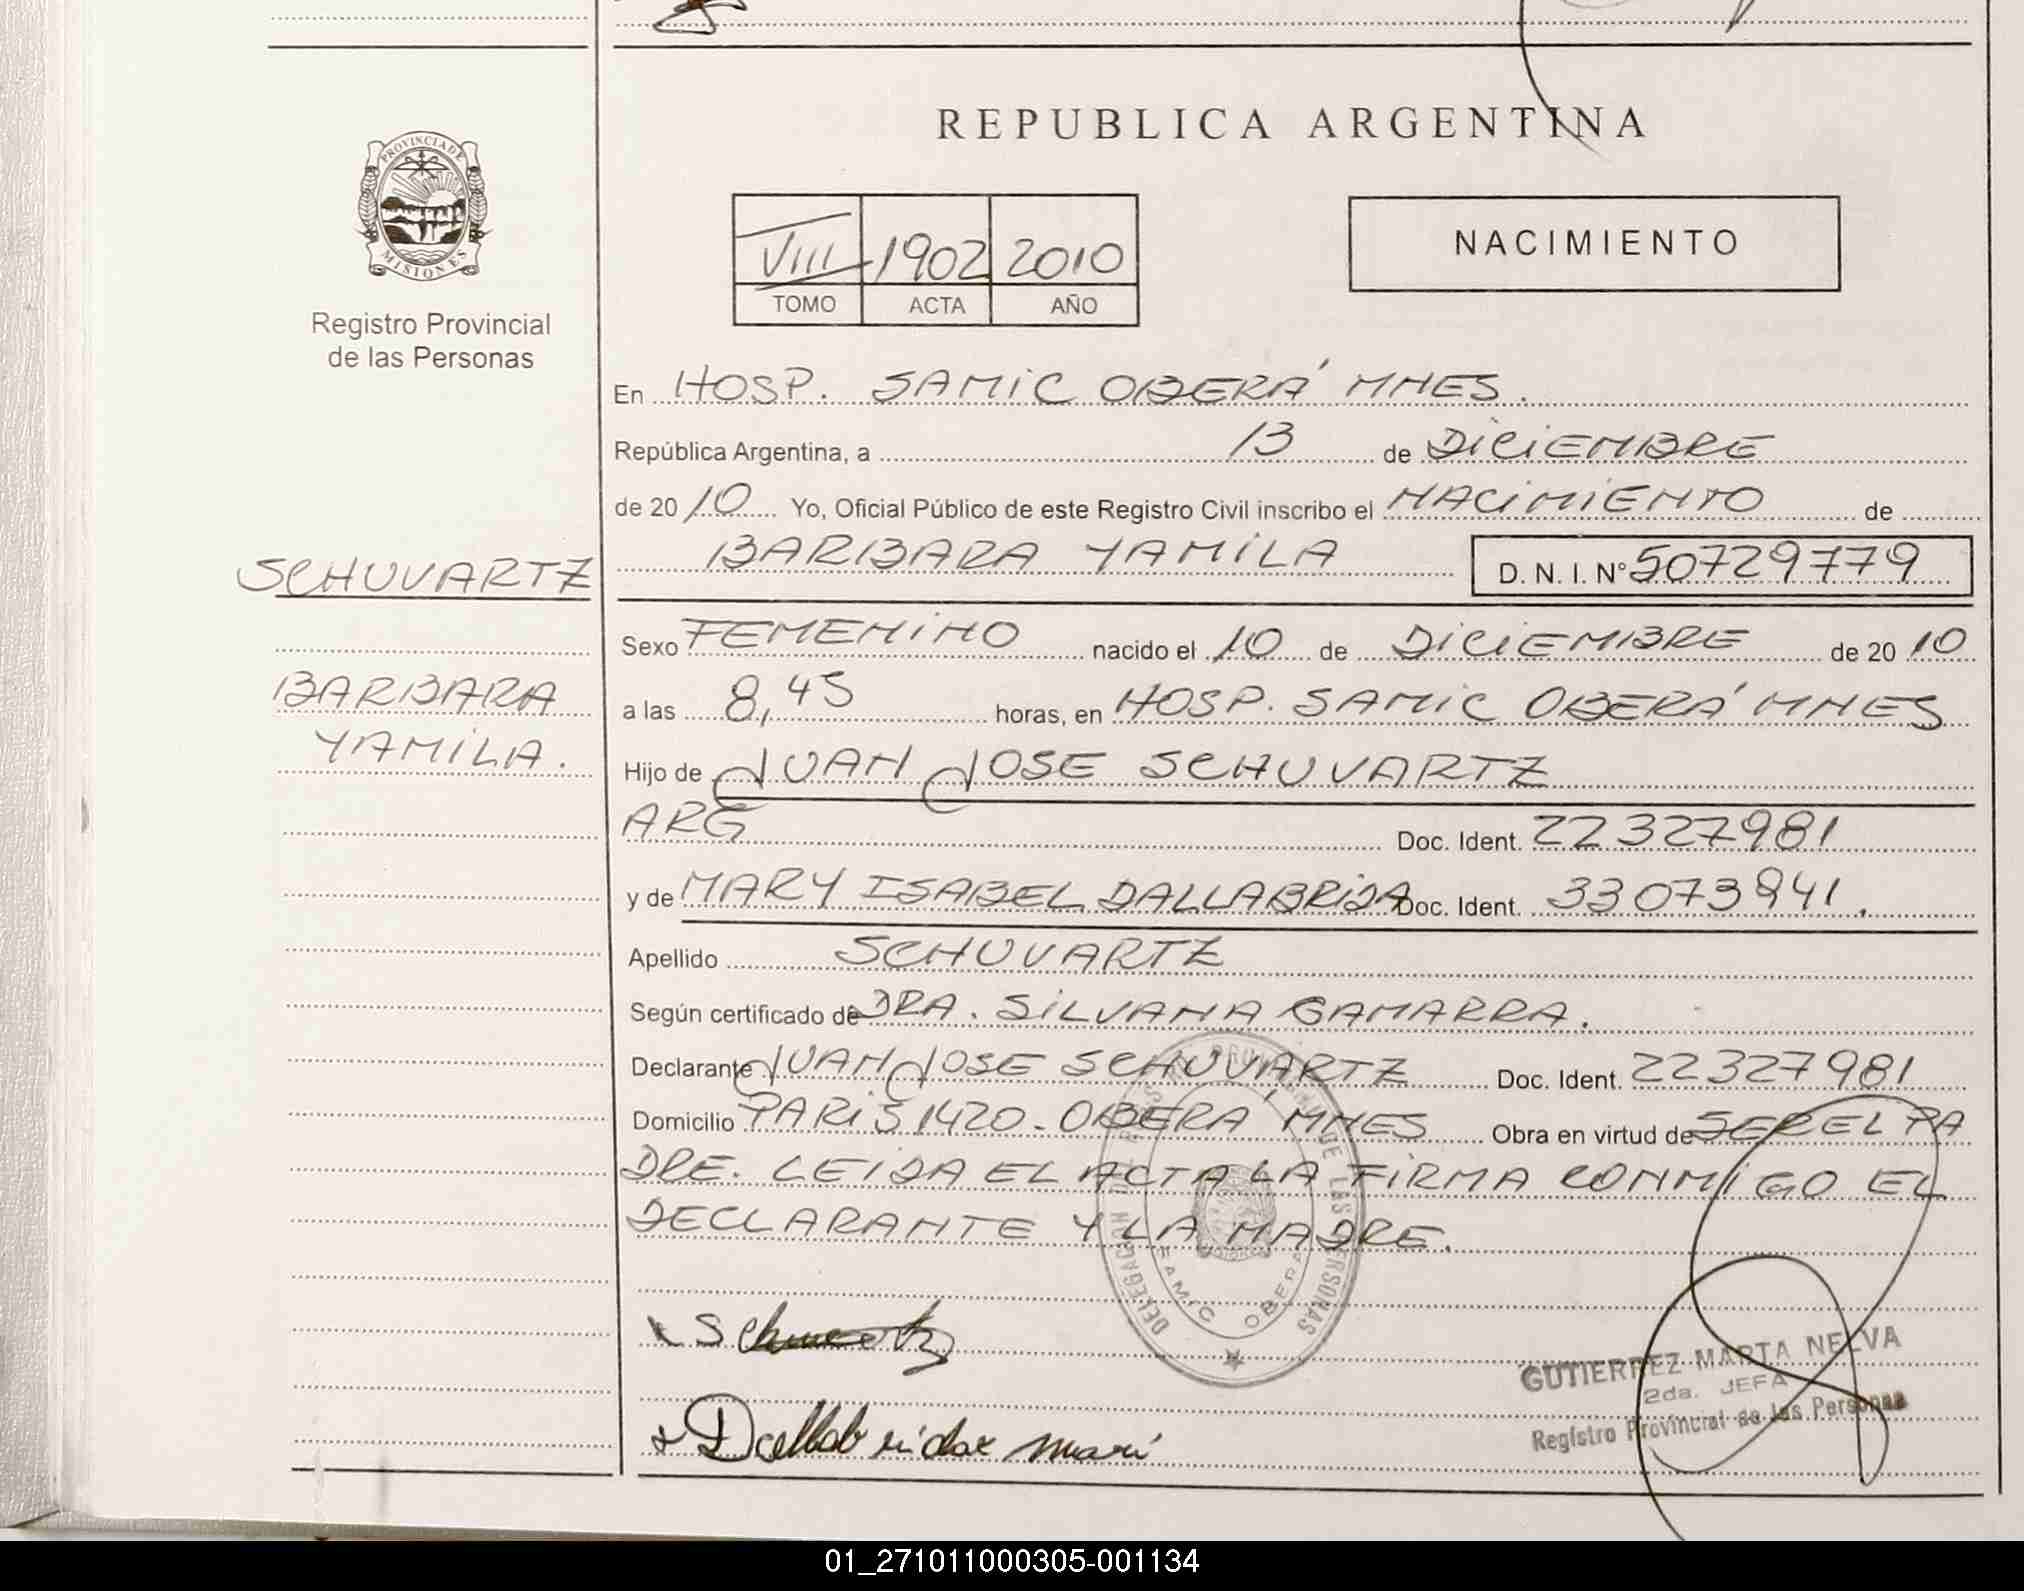 REPUBLICA ARGENTINA
PROVINCIA DE
MISIONES
Registro Provincial
de las Personas
VIII 1902 2010
TOMO ACTA AÑO
NACIMIENTO
En HOSP. SAMIC OBERÁ MNES.
República Argentina, a 13 de DICIEMBRE
de 2010 Yo, Oficial Público de este Registro Civil inscribo el NACIMIENTO de
BARBARA YAMILA D. N. I. N° 50729779
SCHUVARTZ
BARBARA
YAMILA.
Sexo FEMENINO nacido el 10 de DICIEMBRE de 2010
a las 8,45 horas, en HOSP. SAMIC OBERÁ MNES
Hijo de JUAN JOSE SCHUVARTZ
ARG Doc. Ident. 22327981
y de MARY ISABEL DALLABRIDA Doc. Ident. 33073941.
Apellido SCHUVARTZ
Según certificado de DRA. SILVANA GAMARRA.
Declarante JUAN JOSE SCHUVARTZ Doc. Ident. 22327981
Domicilio PARIS 1420 - OBERÁ MNES Obra en virtud de SER EL PA
DRE. LEIDA EL ACTA LA FIRMA CONMIGO EL
DECLARANTE Y LA MADRE.
SAMIC OBERA
GUTIERREZ MARTA NELVA
2da. JEFA
Registro Provincial de las Personas
01_271011000305-001134